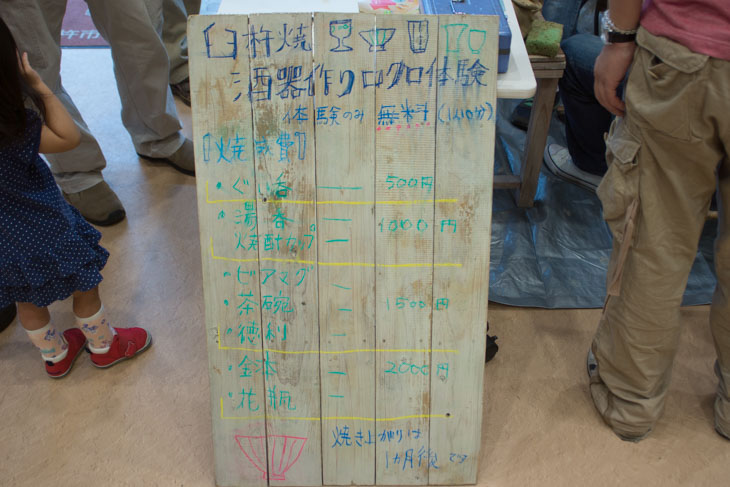 臼杵焼
酒器作りロクロ体験
体験のみ 無料(1人10分)
【焼成費】
・ぐい呑 — 500円
・湯呑 — 1000円
焼酎カップ —
・ビアマグ —
・茶碗 — 1500円
・徳利 —
・金体 — 2000円
・花瓶 —
焼き上がりは
1か月後です